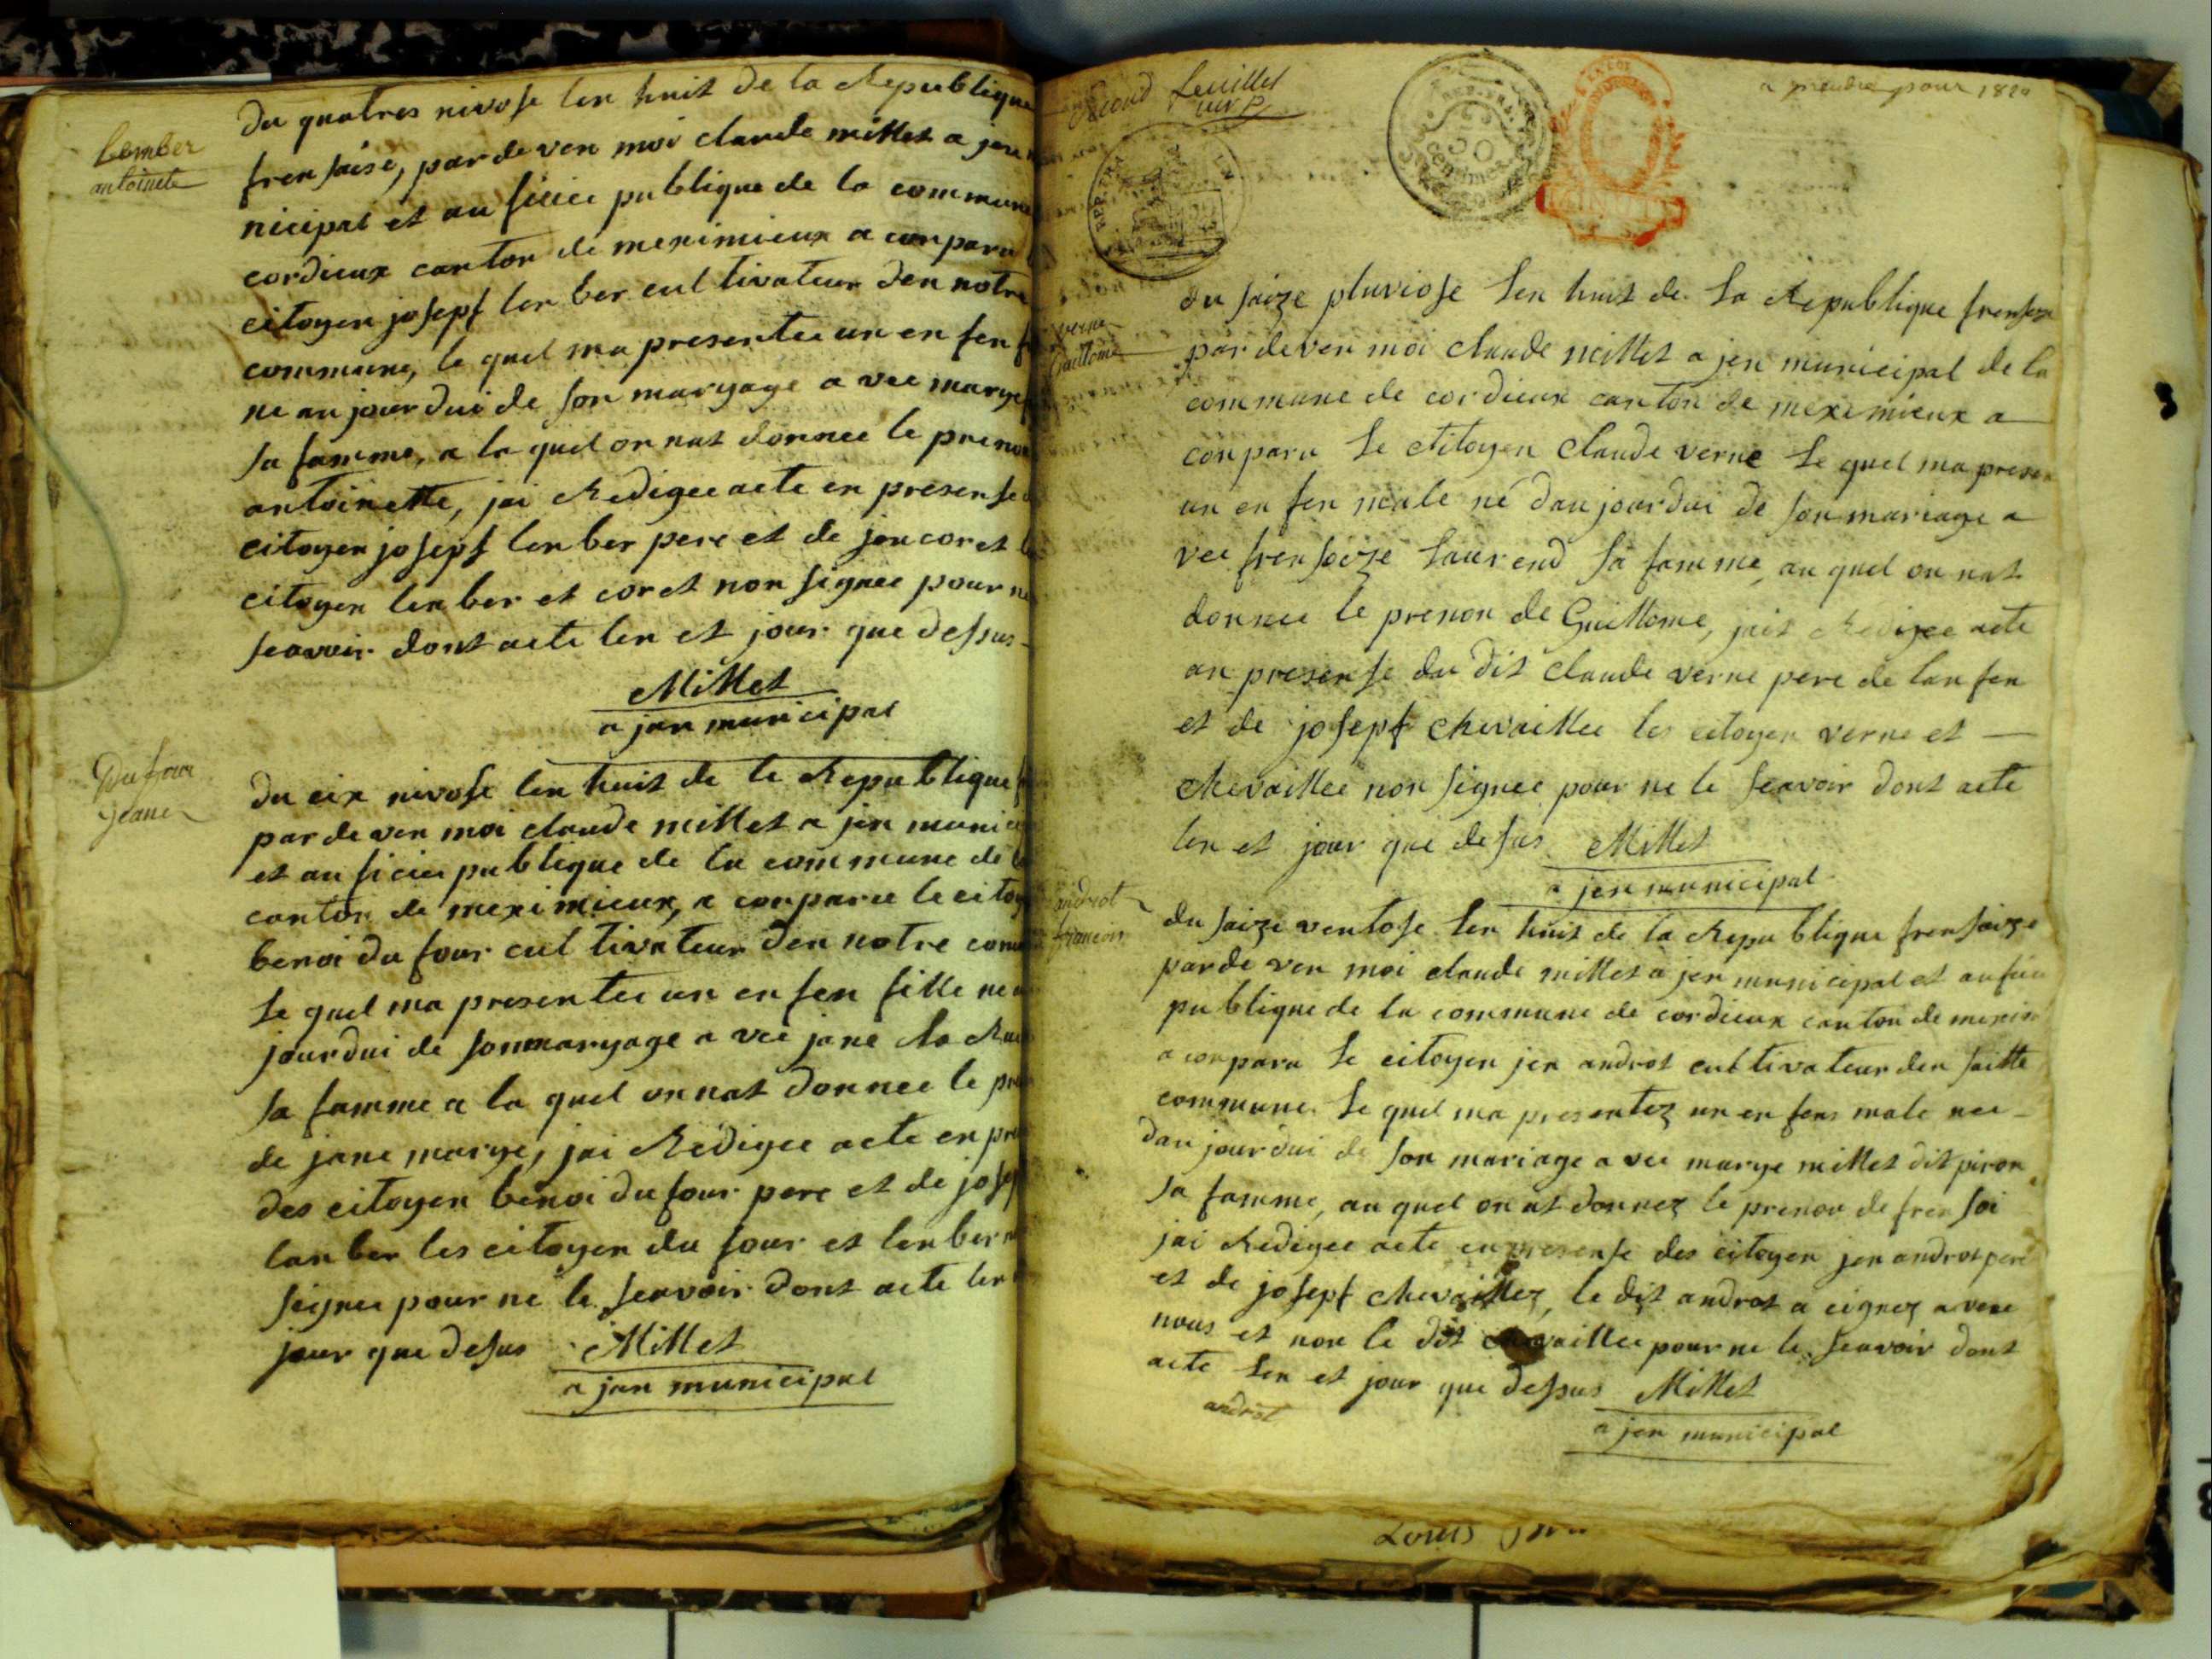 Lember
antoinete
du quatres nivose len huit de la Republique
frensaise, par de ven moi claude millet a jen
nicipal et au ficiei publique de la commune
cordieux canton de meximieux a conparu
citoyen josepf lenber cul tivateur den notre
commune, le quel ma presentee un en fen
ne au jourdui de son maryage a vec marye
sa famme, a la quel on nat donnee le prenon
antoinette, jai Redigee acte en presense
citoyen josepf lenber pere et de jen coret
citoyen lenber et coret non signee pour ne
seavoir dont acte len et jour que dessus
Millet
a jan municipal
Dufour
jeane
du cix nivose len huit de la Republique
par de ven moi claude millet a jen munici
et au ficiei publique de la commune de
canton de meximieux, a conparu le citoy
benoi du four cul tivateur den notre com
le quel ma presentee un en fen fille ne
jourdui de son maryage a vec jane
sa famme a la quel on nat donnee le pre
de jane marye, jai Redigee acte en pre
des citoyen benoi du four pere et de josep
lanber les citoyen du four et lenber
signee pour ne le seavoir dont acte len
jour que desus Millet
a jan municipal
Second feuillet
REP. FRA
50
centimes
a prendre pour
verne
Guillome
du saize pluviose len huit de la Republique frensaize
par de ven moi claude millet a jen municipal de la
commune de cordieux canton de meximieux a
conparu le citoyen claude verne le quel ma presen
un en fen male né dau jourdui de son mariage a
vec frensoize laurend sa famme, au quel on nat
donnee le prenon de Guillome, jait Redigee acte
an presense du dit claude verne pere de lan fen
et de josepf chevaillee les citoyen verne et
chevaillee non signee pour ne le seavoir dont acte
len et jour que desus Millet
a jen municipal
androt
francois
du saize ventose len huit de la Republique frensaize
par de ven moi claude millet a jen municipal et au ficiei
publique de la commune de cordieux canton de mexim
a conparu le citoyen jen androt cul tivateur den saitte
commune. le quel ma presentez un en fens male nee
dau jourdui de son mariage a vec marye millet dit piron
sa famme, au quel on at donnez le prenon de fren soi
jai Redigee acte en presense des citoyen jen androt pere
et de josepf chevaillez, le dit androt a cignez a vec
nous et non le dit chevaillee pour ne le seavoir dont
acte len et jour que dessus Millet
androt
a jen municipal
Louis